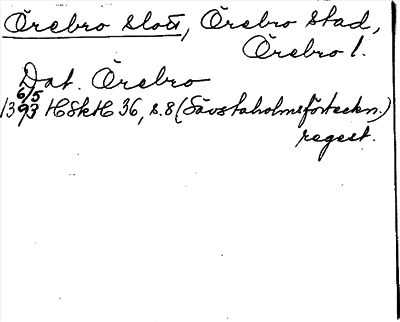 Örebro slott, Örebro stad,
Örebro l.
Dat. Örebro
6/5
1393 HSkH 36, s.8 (Sävstaholmsförteckn.)
regest.